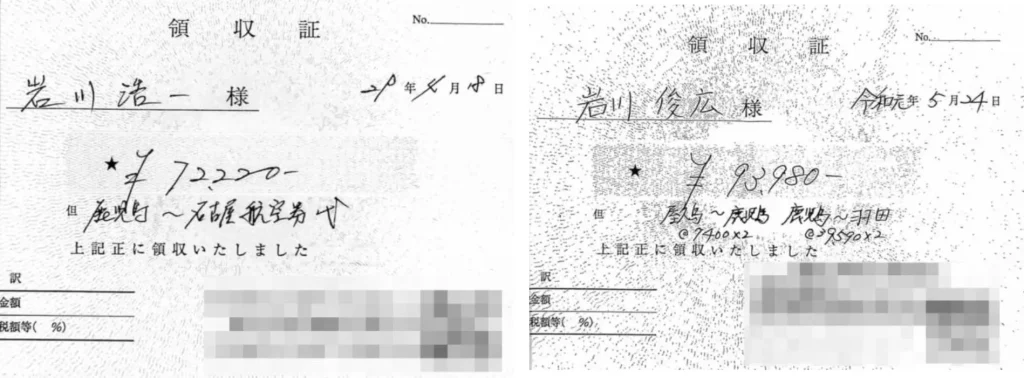 領収証
No.
岩川 浩一 様
29年4月18日
★ ¥72,220-
但 鹿児島～名古屋航空券代
上記正に領収いたしました
訳
金額
税額等( %)
領収証
No.
岩川 俊広 様
令和元年5月24日
★ ¥93,980-
但 屋久島～鹿児島 鹿児島～羽田
@7400×2 @39590×2
上記正に領収いたしました
訳
金額
税額等( %)